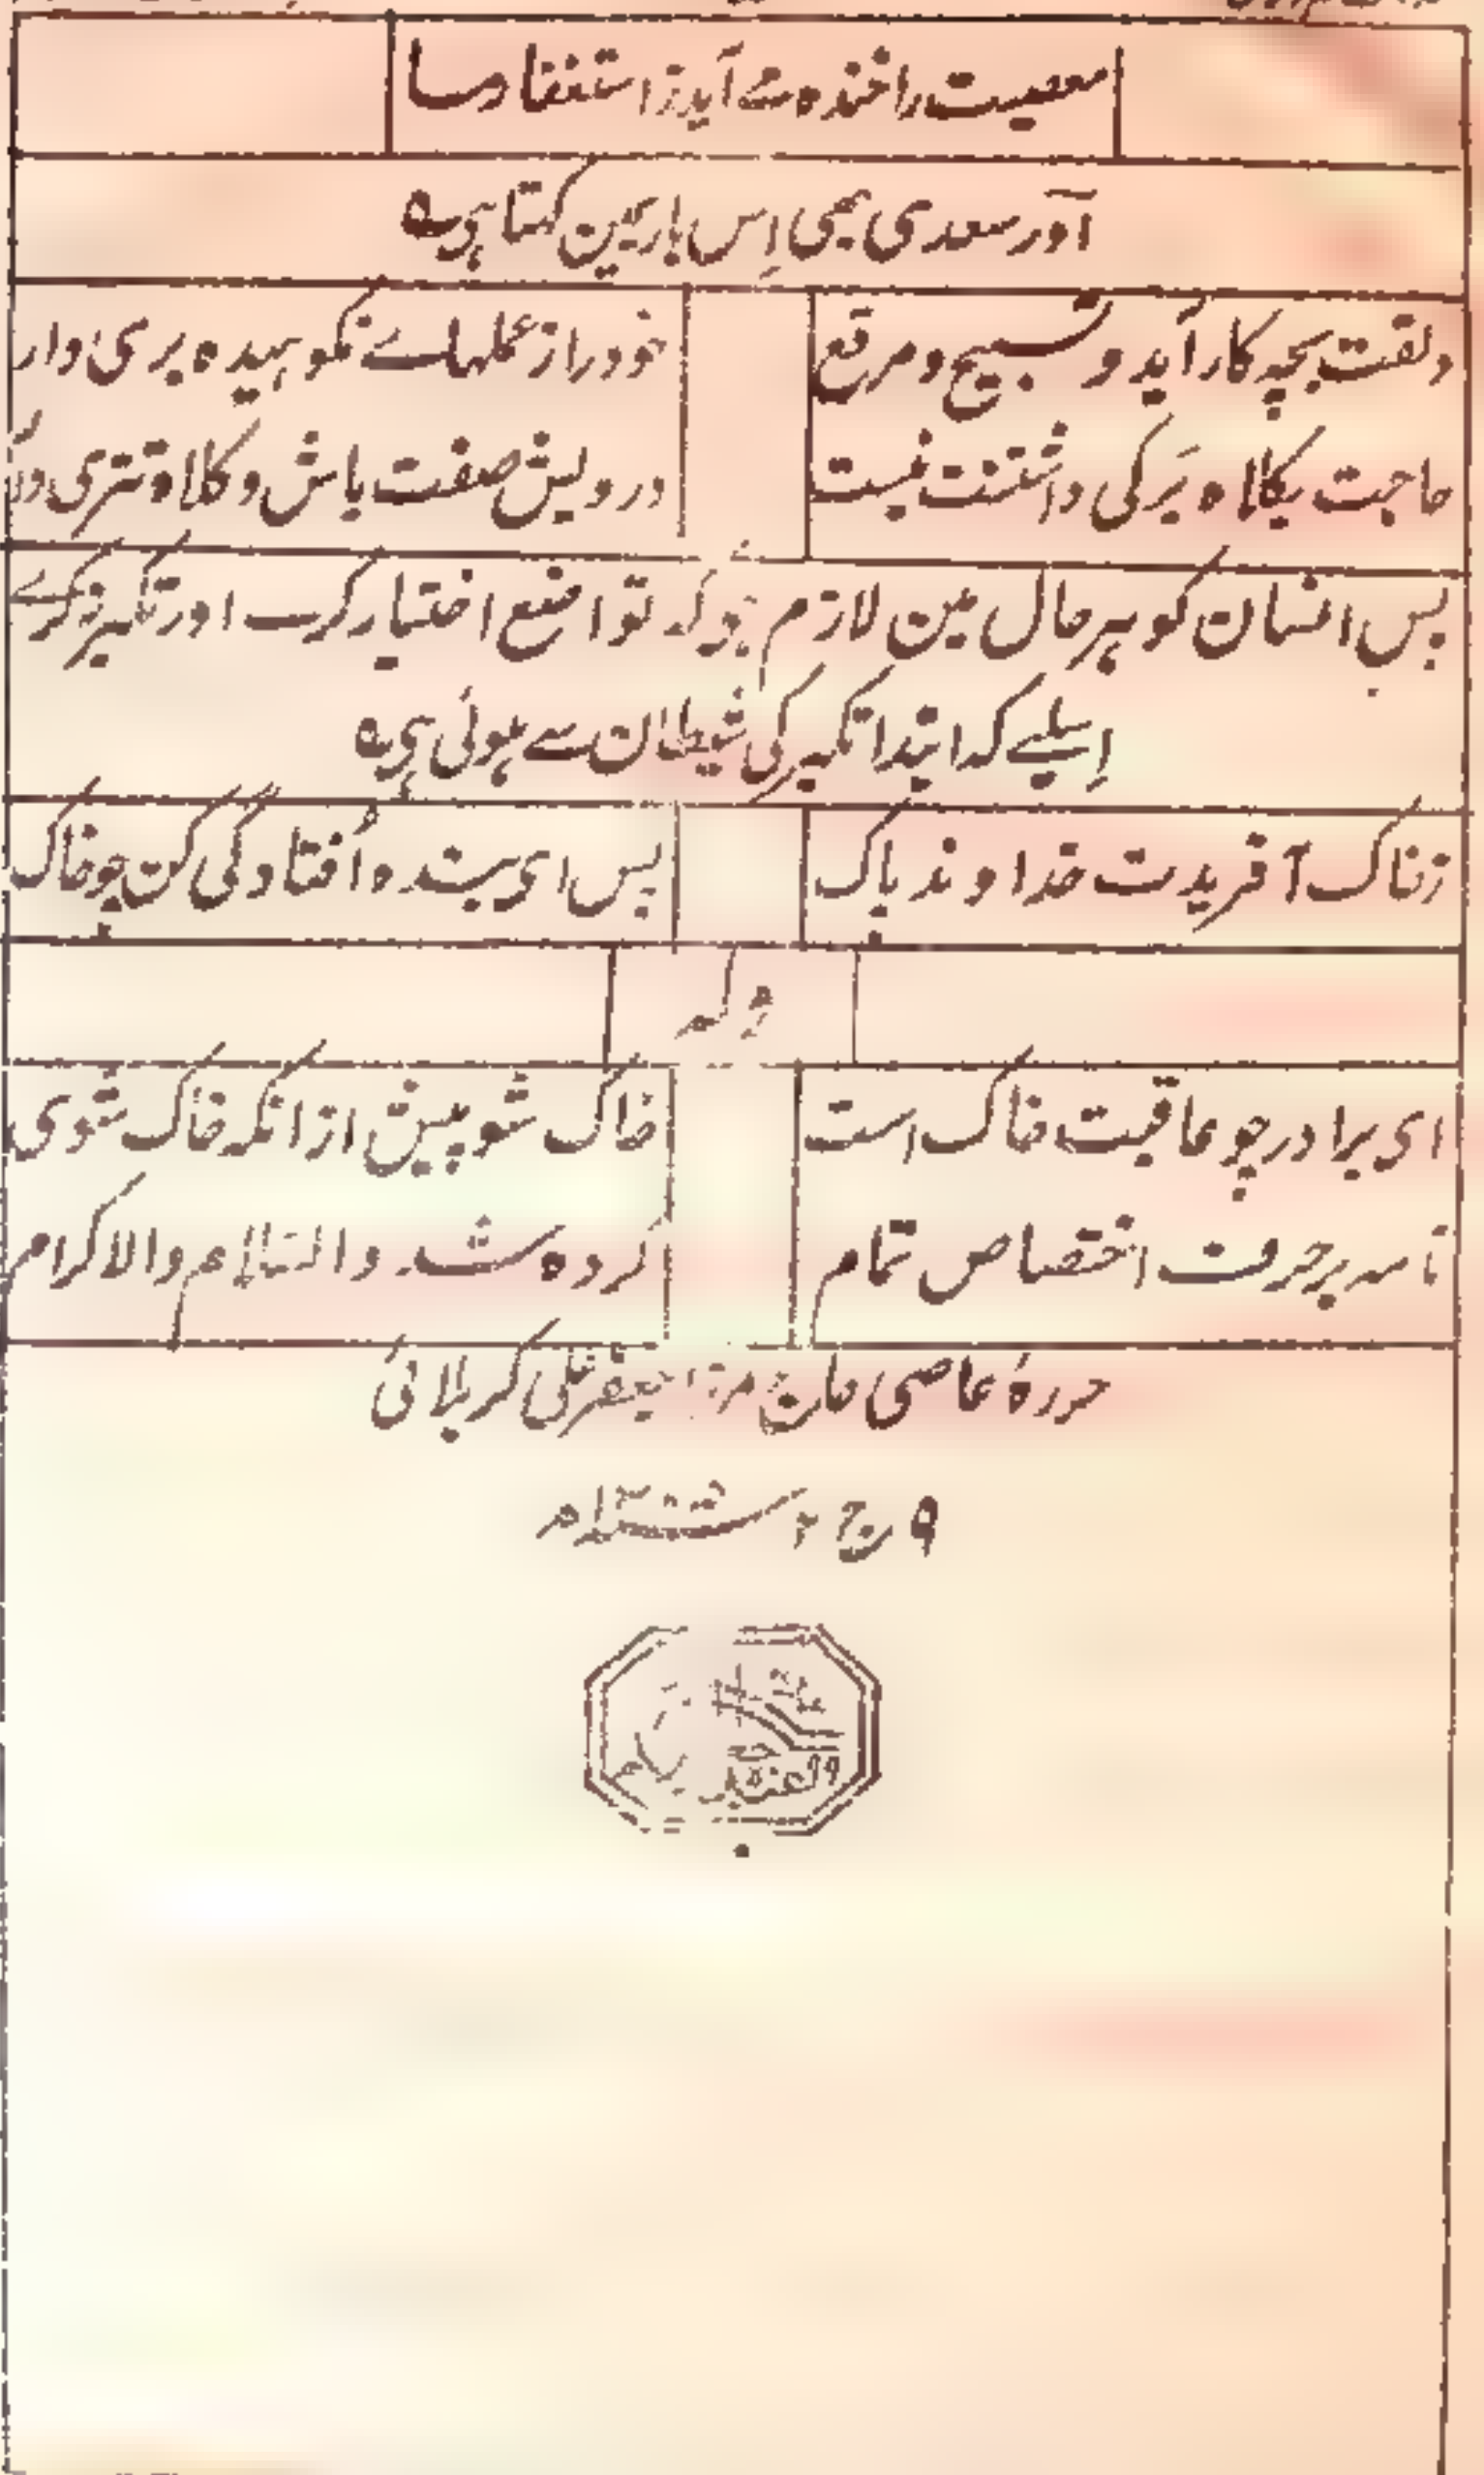 معصیت را خندہ مے آید ز استغفار ما
اور سعدی بھی اس بارہمین کہتا ہی
دلقت بچہ کار آید و تسبیح و مرقع خود را ز عملہاے نکوہیدہ بری دار
حاجت بکلاہ برکی داشتنت نیست درویش صفت باش و کلاہ تتری دار
پس انسان کو ہر حال مین لازم ہی کہ تواضع اختیار کرے اور تکبر نکرے
اسلیے کہ ابتدا تکبر کی شیطان سے ہوئی ہی
ز خاک آفریدت خداوند پاک پس ای بندہ اُفتادگی کن چو خاک
ولہ
ای برادر چو عاقبت خاک است خاک شو پیش ازانکہ خاک شوی
نامہ بر حرف اختصاص تمام کردہ شد والسلام والاکرام
حررہٗ عاصی جعفر علی کربلائی